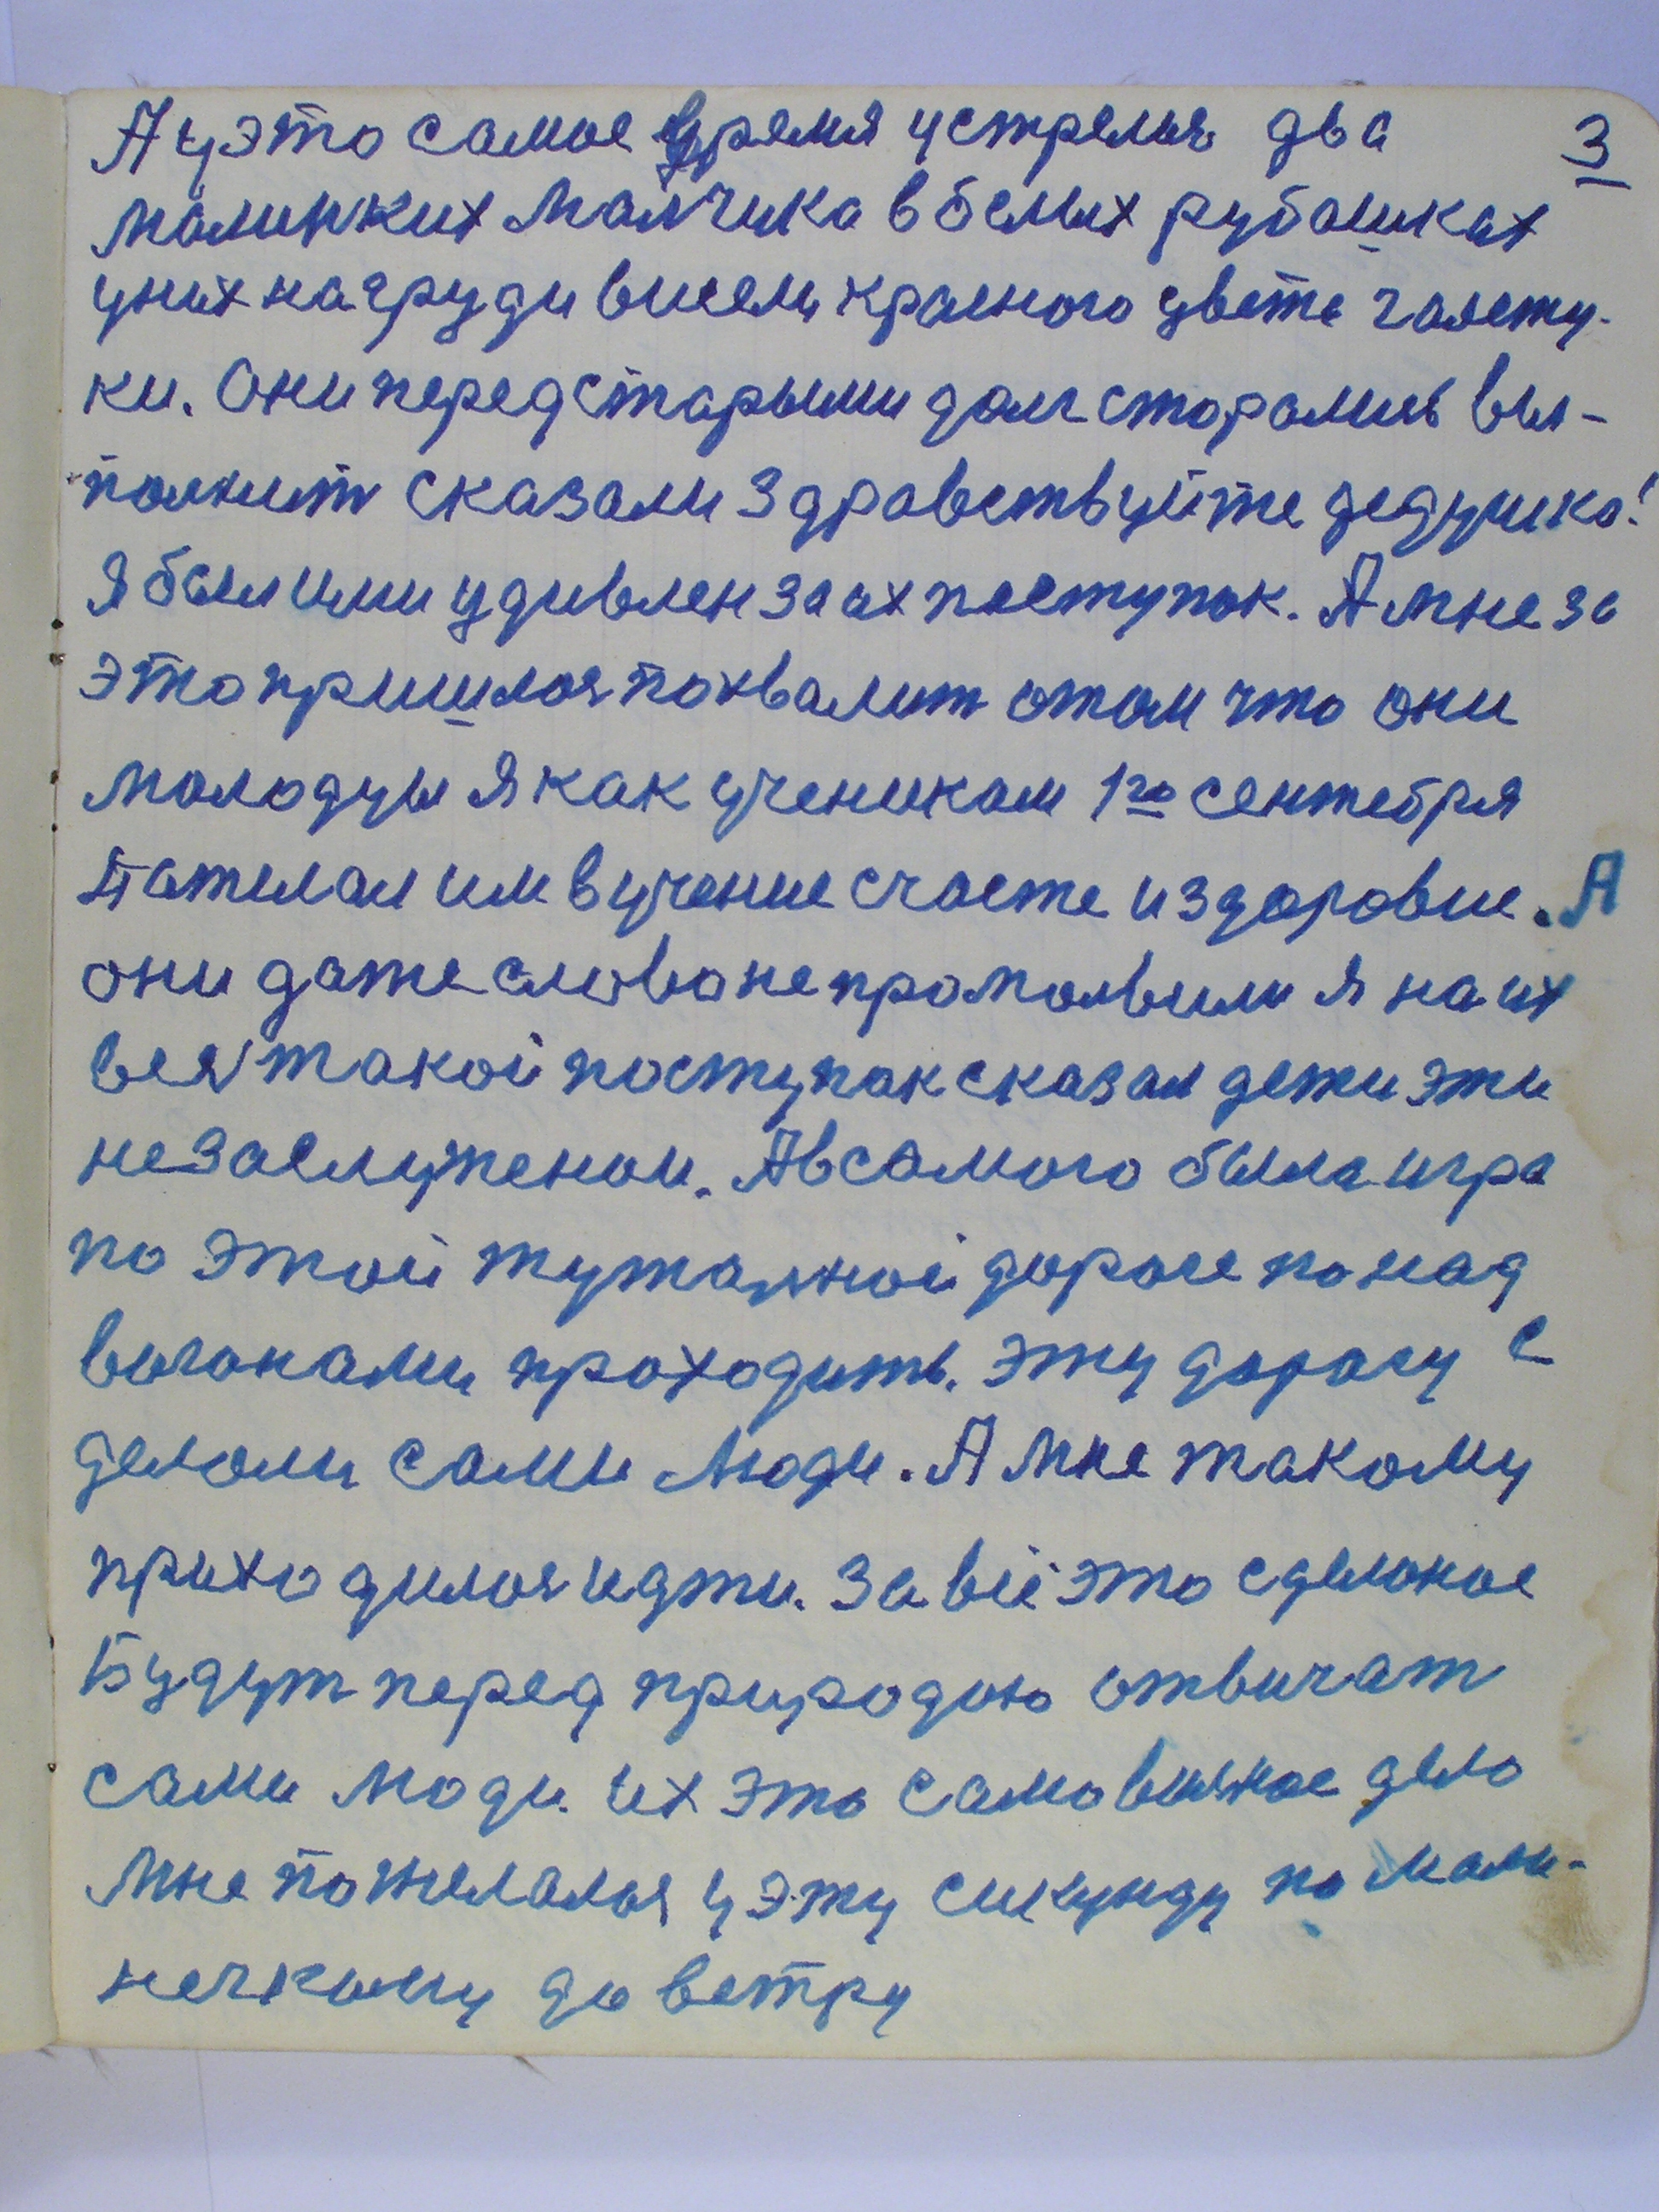 А у это самое время устрелья два 3
малинких малчика в белых рубашках
у них на груди висели красного цвета галсту-
ки. Они перед старыми долг сторамив вы-
полнит сказали здравствуйте дедушка!
Я был ими удивлен за их поступок. А мне за
это пришлося похвалит отом что они
молодцы я как ученикам 1го сентебря
пажелал им в учение счасте и здоровие. А
они даже слово не промолвили я на их
весь такой поступок сказал дети эти
незаслуженои. А в самого была игра
по этой туташной дороге понад
вагонами проходить. Эту дорогу с
делали сами люди. А мне такому
приходилося идти. За всё это сделоное
Будут перед природою отвичат
сами люди. Их это само вижное дело
Мне пожелалося у эту сикунду по мали-
нечкому до ветру